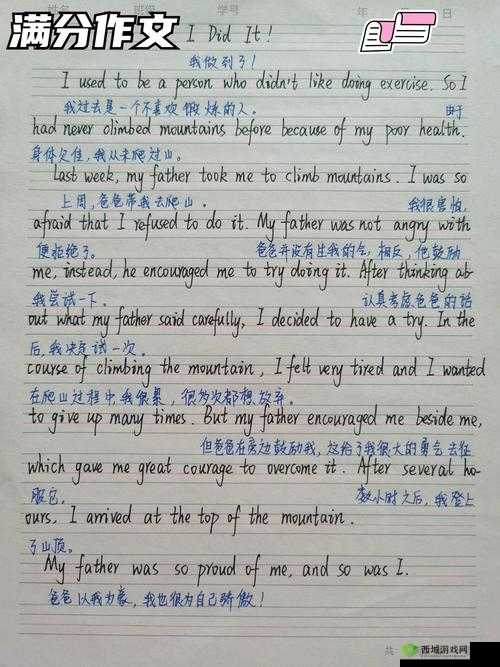 满分作文
班级 学号 年 月 日
I Did It!
我做到了!
I used to be a person who didn't like doing exercise. So I
我过去是一个不喜欢锻炼的人。 由于
had never climbed mountains before because of my poor health.
身体欠佳,我从未爬过山。
Last week, my father took me to climb mountains. I was so
上周,爸爸带我去爬山。 我很害怕,
afraid that I refused to do it. My father was not angry with
便拒绝了。 爸爸并没有生我的气,相反,他鼓励
me, instead, he encouraged me to try doing it. After thinking ab
我尝试一下。 认真考虑爸爸的话
out what my father said carefully, I decided to have a try. In the
后,我决定试一次。
course of climbing the mountain, I felt very tired and I wanted
在爬山过程中,我很累,很多次都想放弃。
to give up many times. But my father encouraged me beside me,
但爸爸在旁边鼓励我,这给了我很大的勇气去征
which gave me great courage to overcome it. After several ho
服它。 数小时之后,我登上
ours, I arrived at the top of the mountain.
了山顶。
My father was so proud of me, and so was I.
爸爸以我为豪,我也很为自己骄傲!
共
西城游戏网